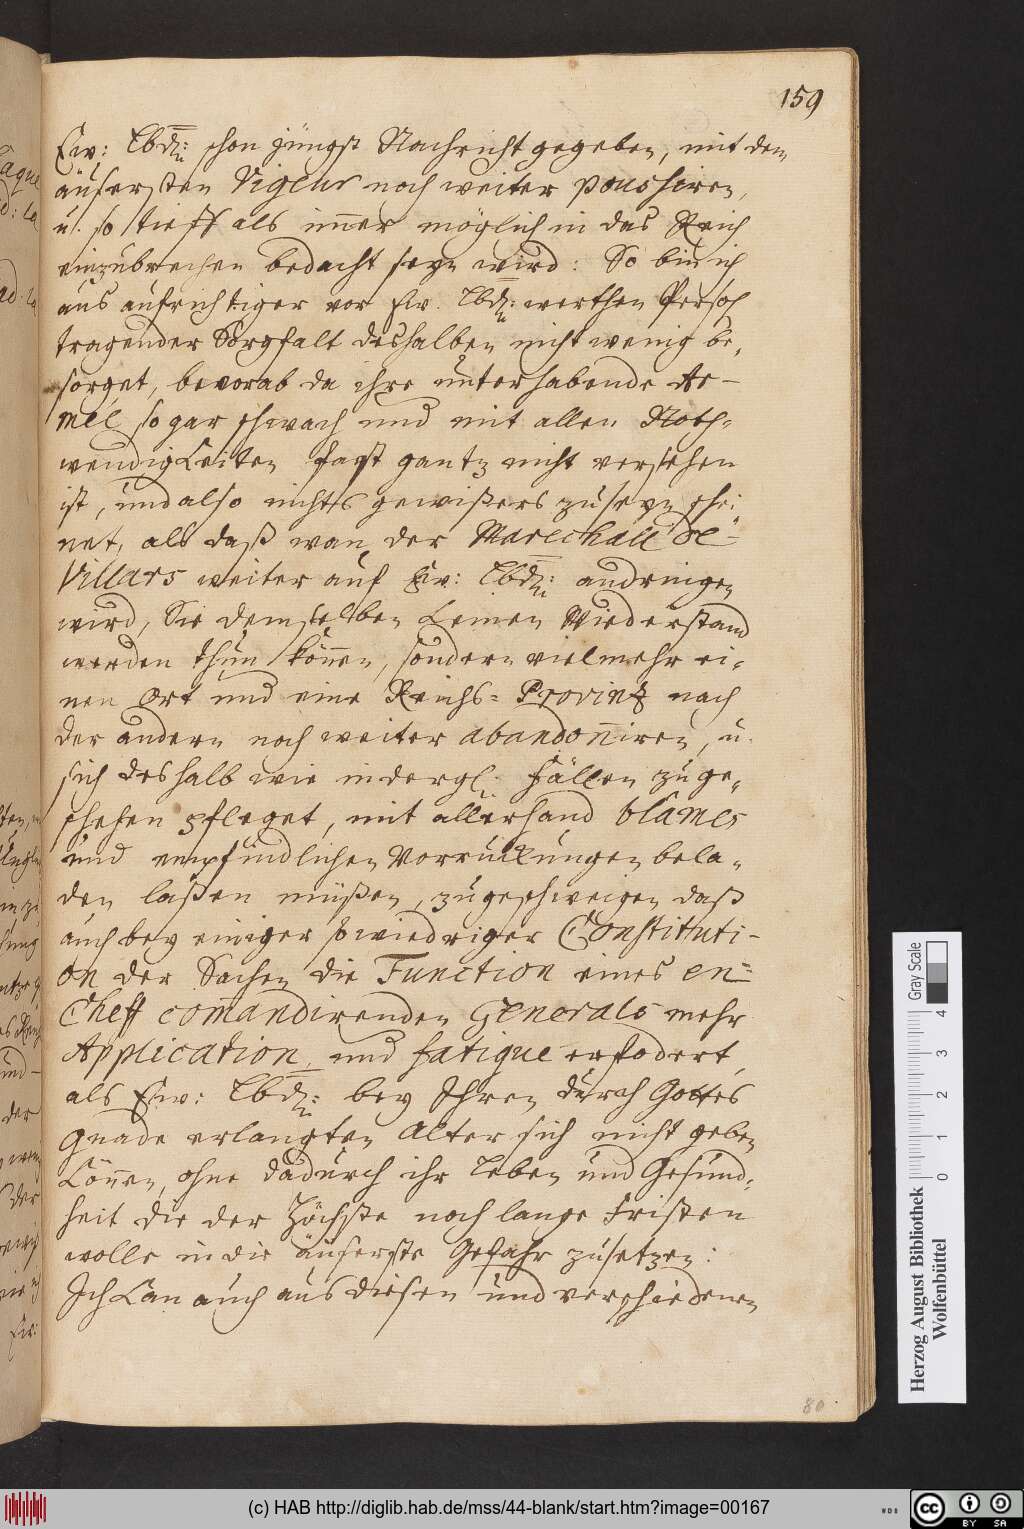 159
Ew: Lbd: schon jüngst Nachricht gegeben, mit dem
äusersten Vigeur noch weiter poussiren,
u. so tieff als im̄er möglich in das Reich
einzubrechen bedacht seyn wird: So bin ich
aus aufrichtiger vor Ew. Lbd: werthen Persoh
tragender Sorgfalt deshalben nicht wenig be,
sorget, bevorab da ihre unterhabende Ar-
mée so gar schwach und mit allen Noth-
wendigkeiten fast gantz nicht versehen
ist, und also nichts gewißers zu seyn schei
net, als daß wan̄ der Marechall de
Villars weiter auf Ew: Lbd: andringen
wird, Sie demselben keinen Wiederstand
werden thun kön̄en, sondern vielmehr ei-
nen Ort und eine Reichs= Provintz nach
der andern noch weiter abandon̄iren, u.
sich deshalb wie in dergl. Fällen zu ge-
schehen pfleget, mit allerhand blames
und empfindlichen Vorrückungen bela-
den laßen müßen, zugeschweigen daß
auch bey einiger so wiedriger Constituti-
on der Sachen die Function eines en=
Cheff com̄andirenden Generals mehr
Application und fatigue erfodert,
als Ew: Lbd: bey Ihren durch Gottes
Gnade erlangten Alter sich nicht geben
kön̄en, ohne dadurch ihr Leben und Gesund-
heit die der Höchste noch lange Fristen
wolle in die äuserste Gefahr zusetzen:
Ich kan auch aus diesen und verschiedenen
80
Herzog August Bibliothek
Wolfenbüttel
Gray Scale
0 1 2 3 4
(c) HAB http://diglib.hab.de/mss/44-blank/start.htm?image=00167
WDB
cc BY SA